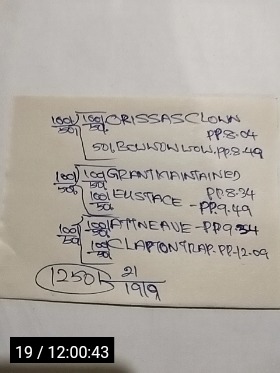 100/50) 100/50 ORISSASCLOWN
PP.8.04
50L.BOWWOWWOW.PP.8.49
100/50) 100/50 GRANTMAINTAINED
PP.8.34
100/50 EUSTACE - PP.9.49
100/50) 100/50 ATTNEAVE - PP.9.34
100/50 CLAPTONTRAP. PP.12.09
1250L 21/19/9
19 / 12:00:43